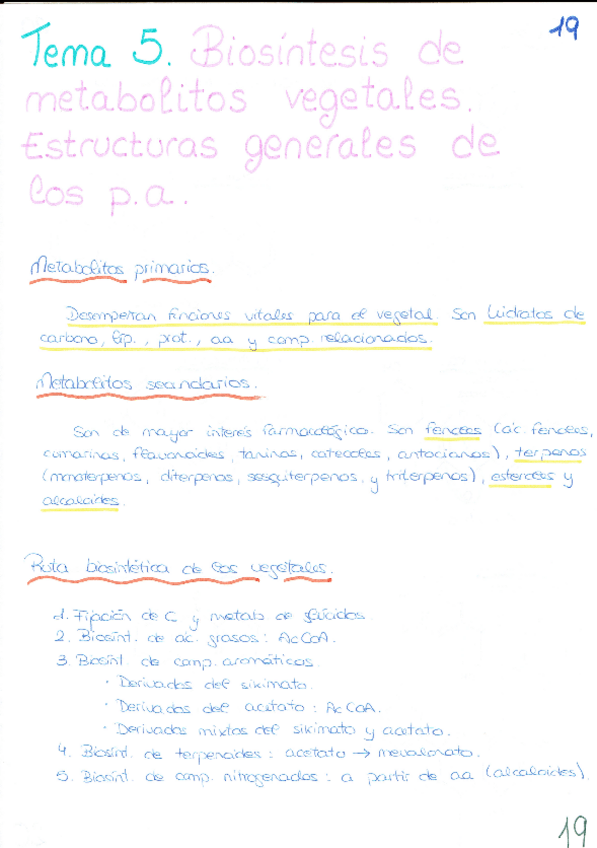 19
Tema 5. Biosíntesis de
metabolitos vegetales.
Estructuras generales de
los p.a.
Metabolitos primarios.
Desempeñan funciones vitales para el vegetal. Son hidratos de
carbono, líp., prot., aa y comp. relacionados.
Metabolitos secundarios.
Son de mayor interés farmacológico. Son fenoles (ác. fenoles,
cumarinas, flavonoides, taninos, catecoles, antocianos), terpenos
(monoterpenos, diterpenos, sesquiterpenos y triterpenos), esteroles y
alcaloides.
Ruta biosintética de los vegetales.
1. Fijación de C y metab de glúcidos.
2. Biosínt. de ác. grasos: AcCoA.
3. Biosínt de comp. aromáticos.
· Derivados del sikimato.
· Derivados del acetato: AcCoA.
· Derivados mixtos del sikimato y acetato.
4. Biosínt. de terpenoides: acetato → mevalonato.
5. Biosínt. de comp. nitrogenados: a partir de aa (alcaloides).
19